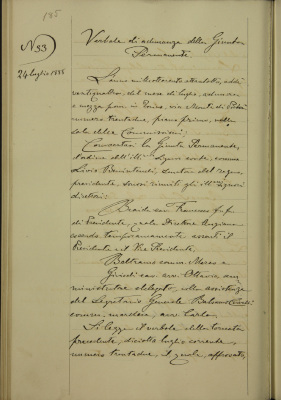 185
N 53
24 luglio 1888
Verbale di adunanza della Giunta
Permanente.
L'anno mille ottocento ottantotto, addì
ventiquattro, del mese di luglio, ad un'ora
e mezza pom. in Roma, via Monte di
numero trentadue, piano primo, nella
sala delle Commissioni;
Convocatasi la Giunta Permanente,
d'ordine dell'Ill. Signor conte, comm.
Livio Benintendi, Senatore del regno,
presidente, sonosi riuniti gli Ill. Signori
direttori:
Braida cav. Francesco f.f.
di Presidente, quale Direttore Anziano
essendo temporaneamente assenti il
Presidente e il Vice Presidente.
Beltramo comm. Marco e
cav. avv. Ottavio am
ministratore delegato, colla assistenza
del Segretario Generale
comm. marchese, avv. Carlo.
Si legge il verbale della tornata
precedente, diciotto luglio corrente,
numero trentadue, il quale, approvato,